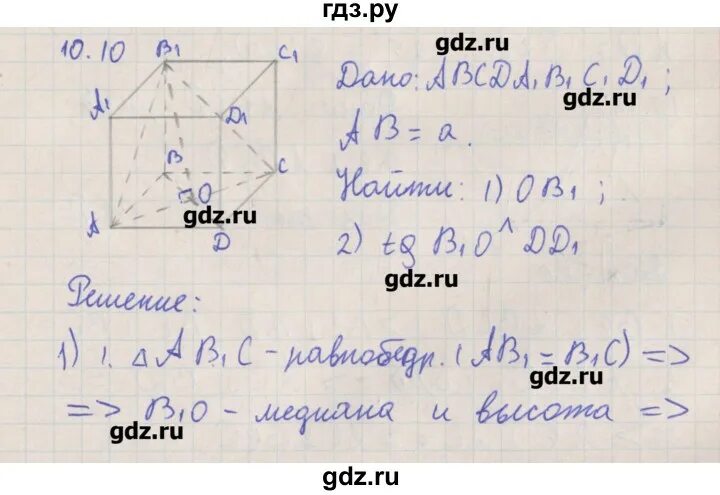 гдз.ру
gdz.ru
10.10
B₁
C₁
A₁
D₁
B
C
O
A
D
gdz.ru
Дано: ABCDA₁B₁C₁D₁;
gdz.ru
AB = a.
Найти: 1) OB₁;
2) tg B₁O^DD₁
gdz.ru
Решение:
1) !. △AB₁C - равнобедр. (AB₁ = B₁C) =>
gdz.ru
=> B₁O - медиана и высота =>
gdz.ru
gdz.ru